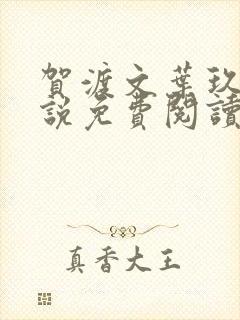 賀渡文葉玖
說免費閱讀
真香大王